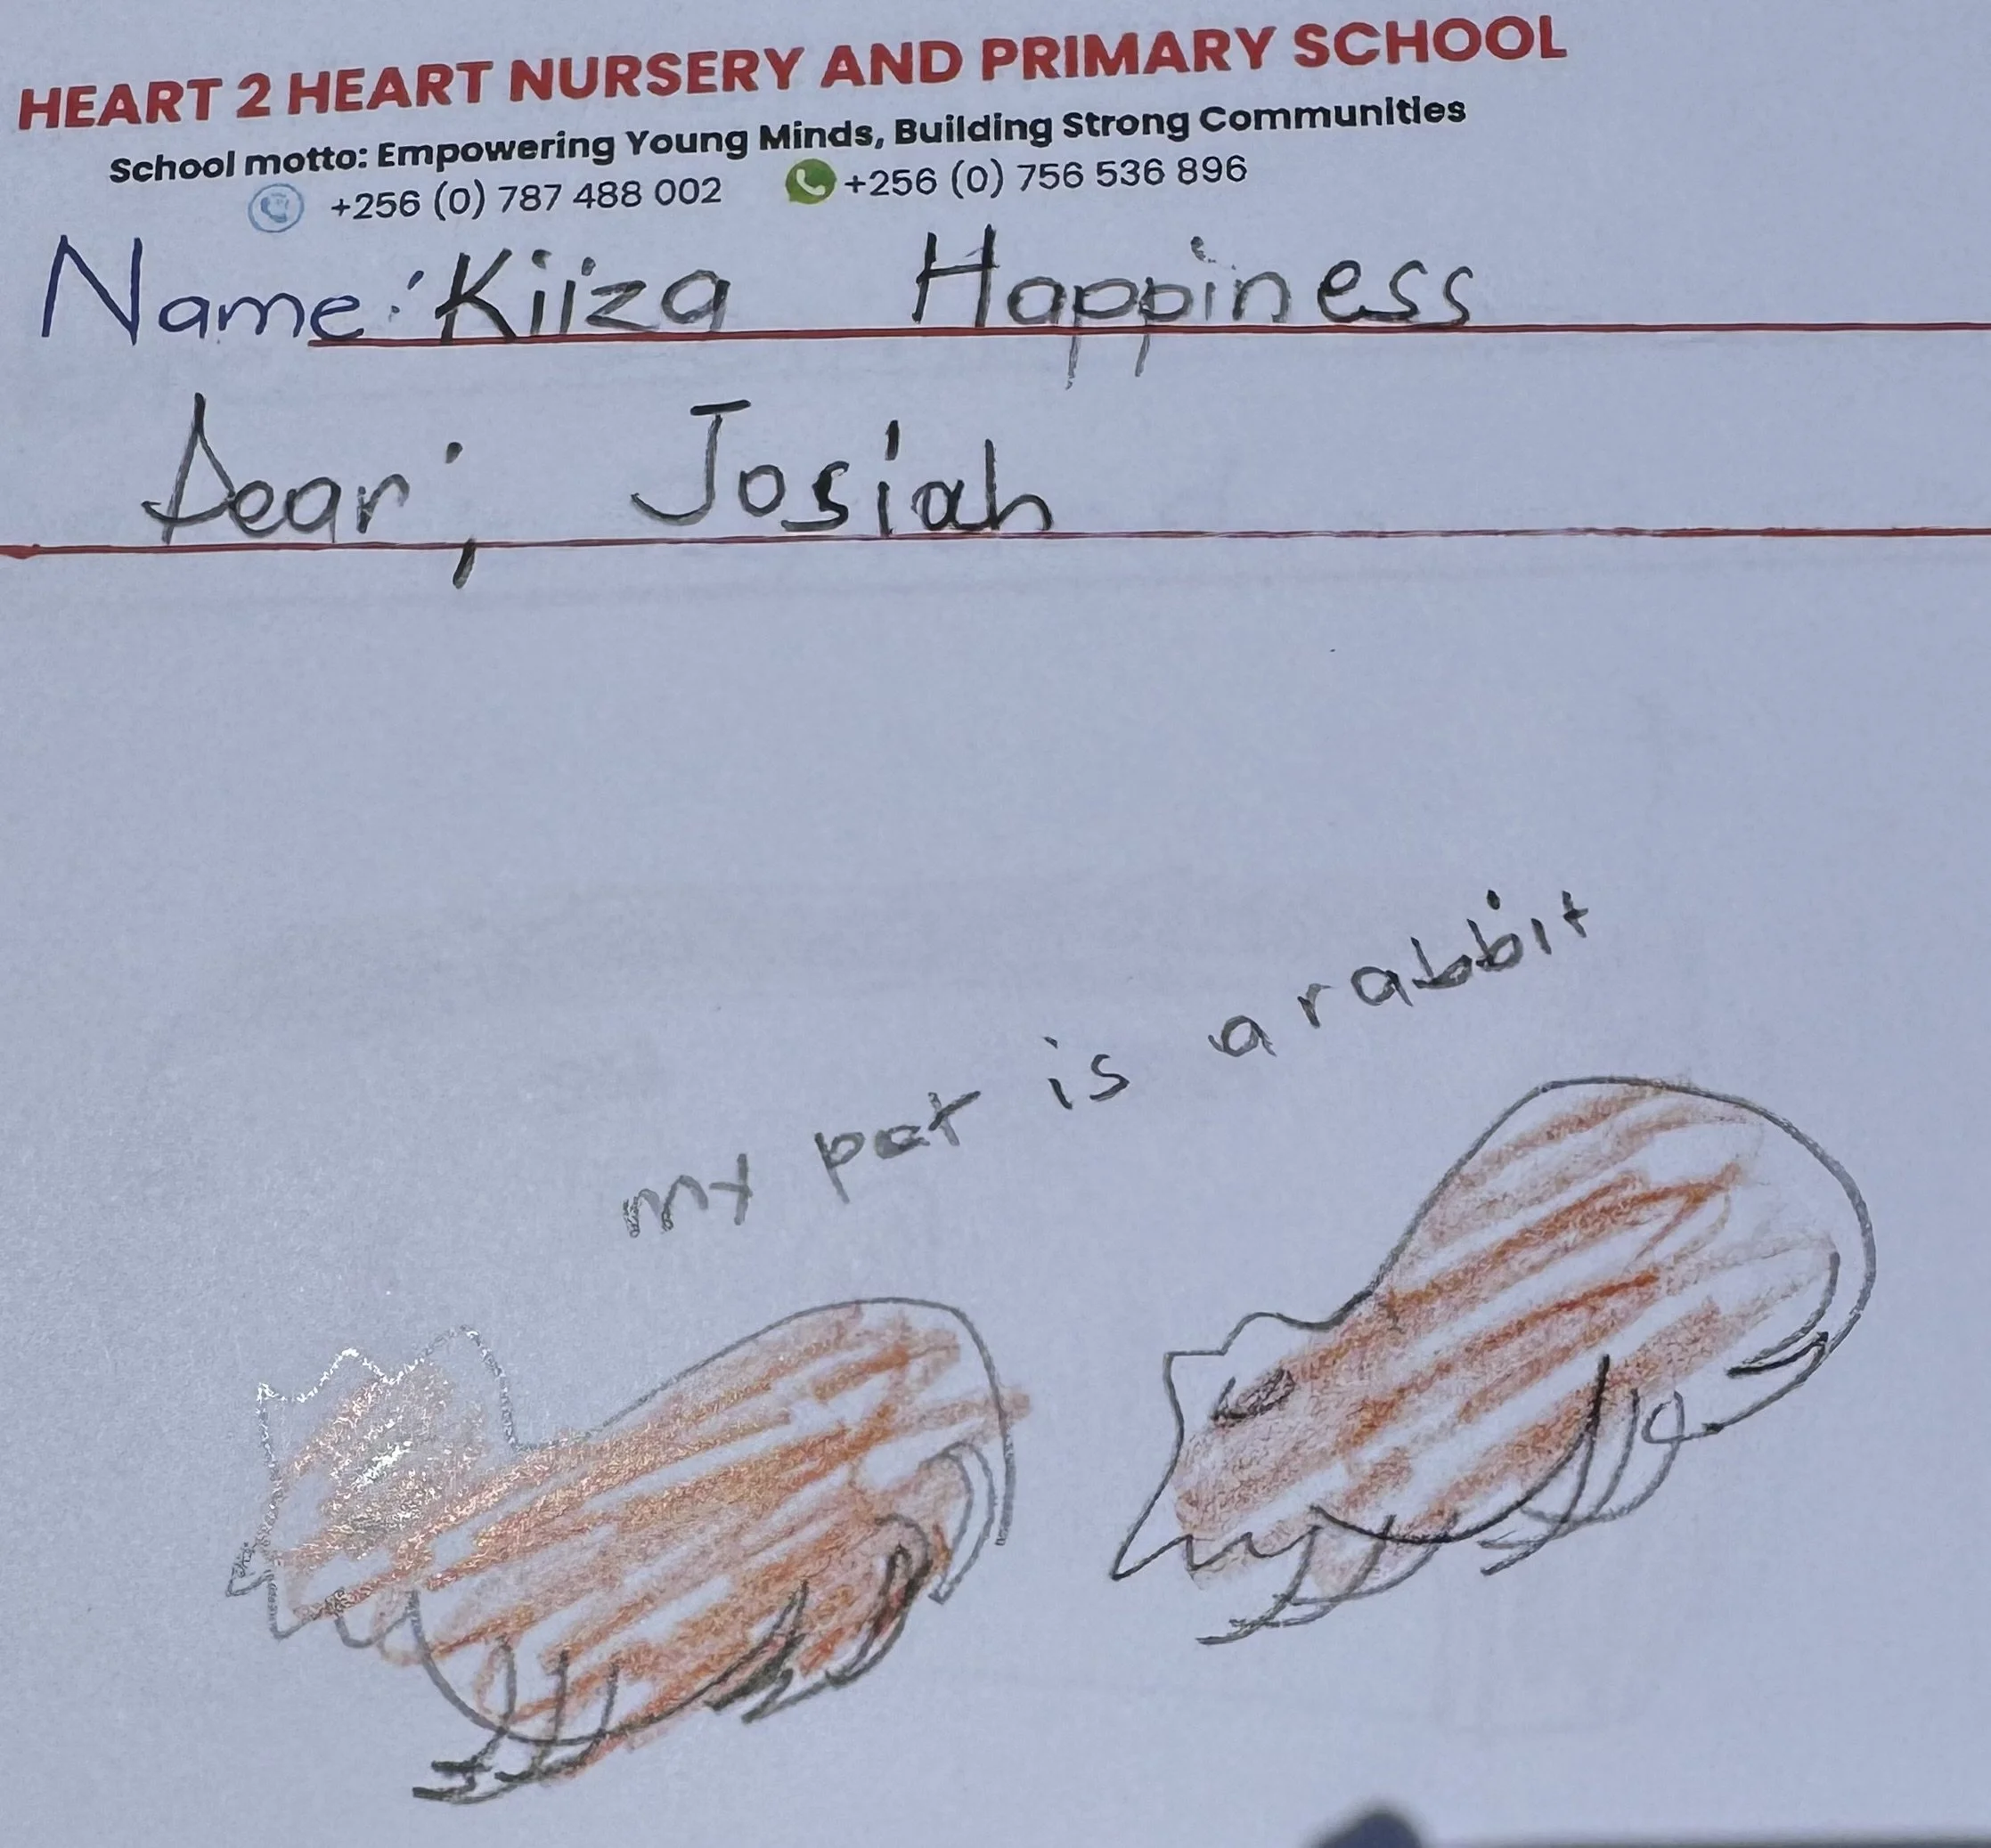 HEART 2 HEART NURSERY AND PRIMARY SCHOOL
School motto: Empowering Young Minds, Building Strong Communities
+256 (0) 787 488 002 +256 (0) 756 536 896
Name: Kiiza Happiness
Dear; Josiah
my pet is a rabbit